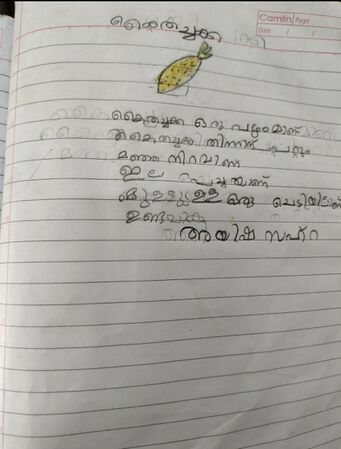 കൈതച്ചക്ക
Camlin Page
Date / /
കൈതച്ചക്ക ഒരു പഴമാണ്
കൈതച്ചക്ക തിന്നാൻ പറ്റും
മഞ്ഞ നിറമാണ്
ഇല പച്ചയാണ്
മുള്ളുള്ള ഒരു ചെടിയിലാണ്
ഉണ്ടാവുക
ആയിഷ സഫ്റ